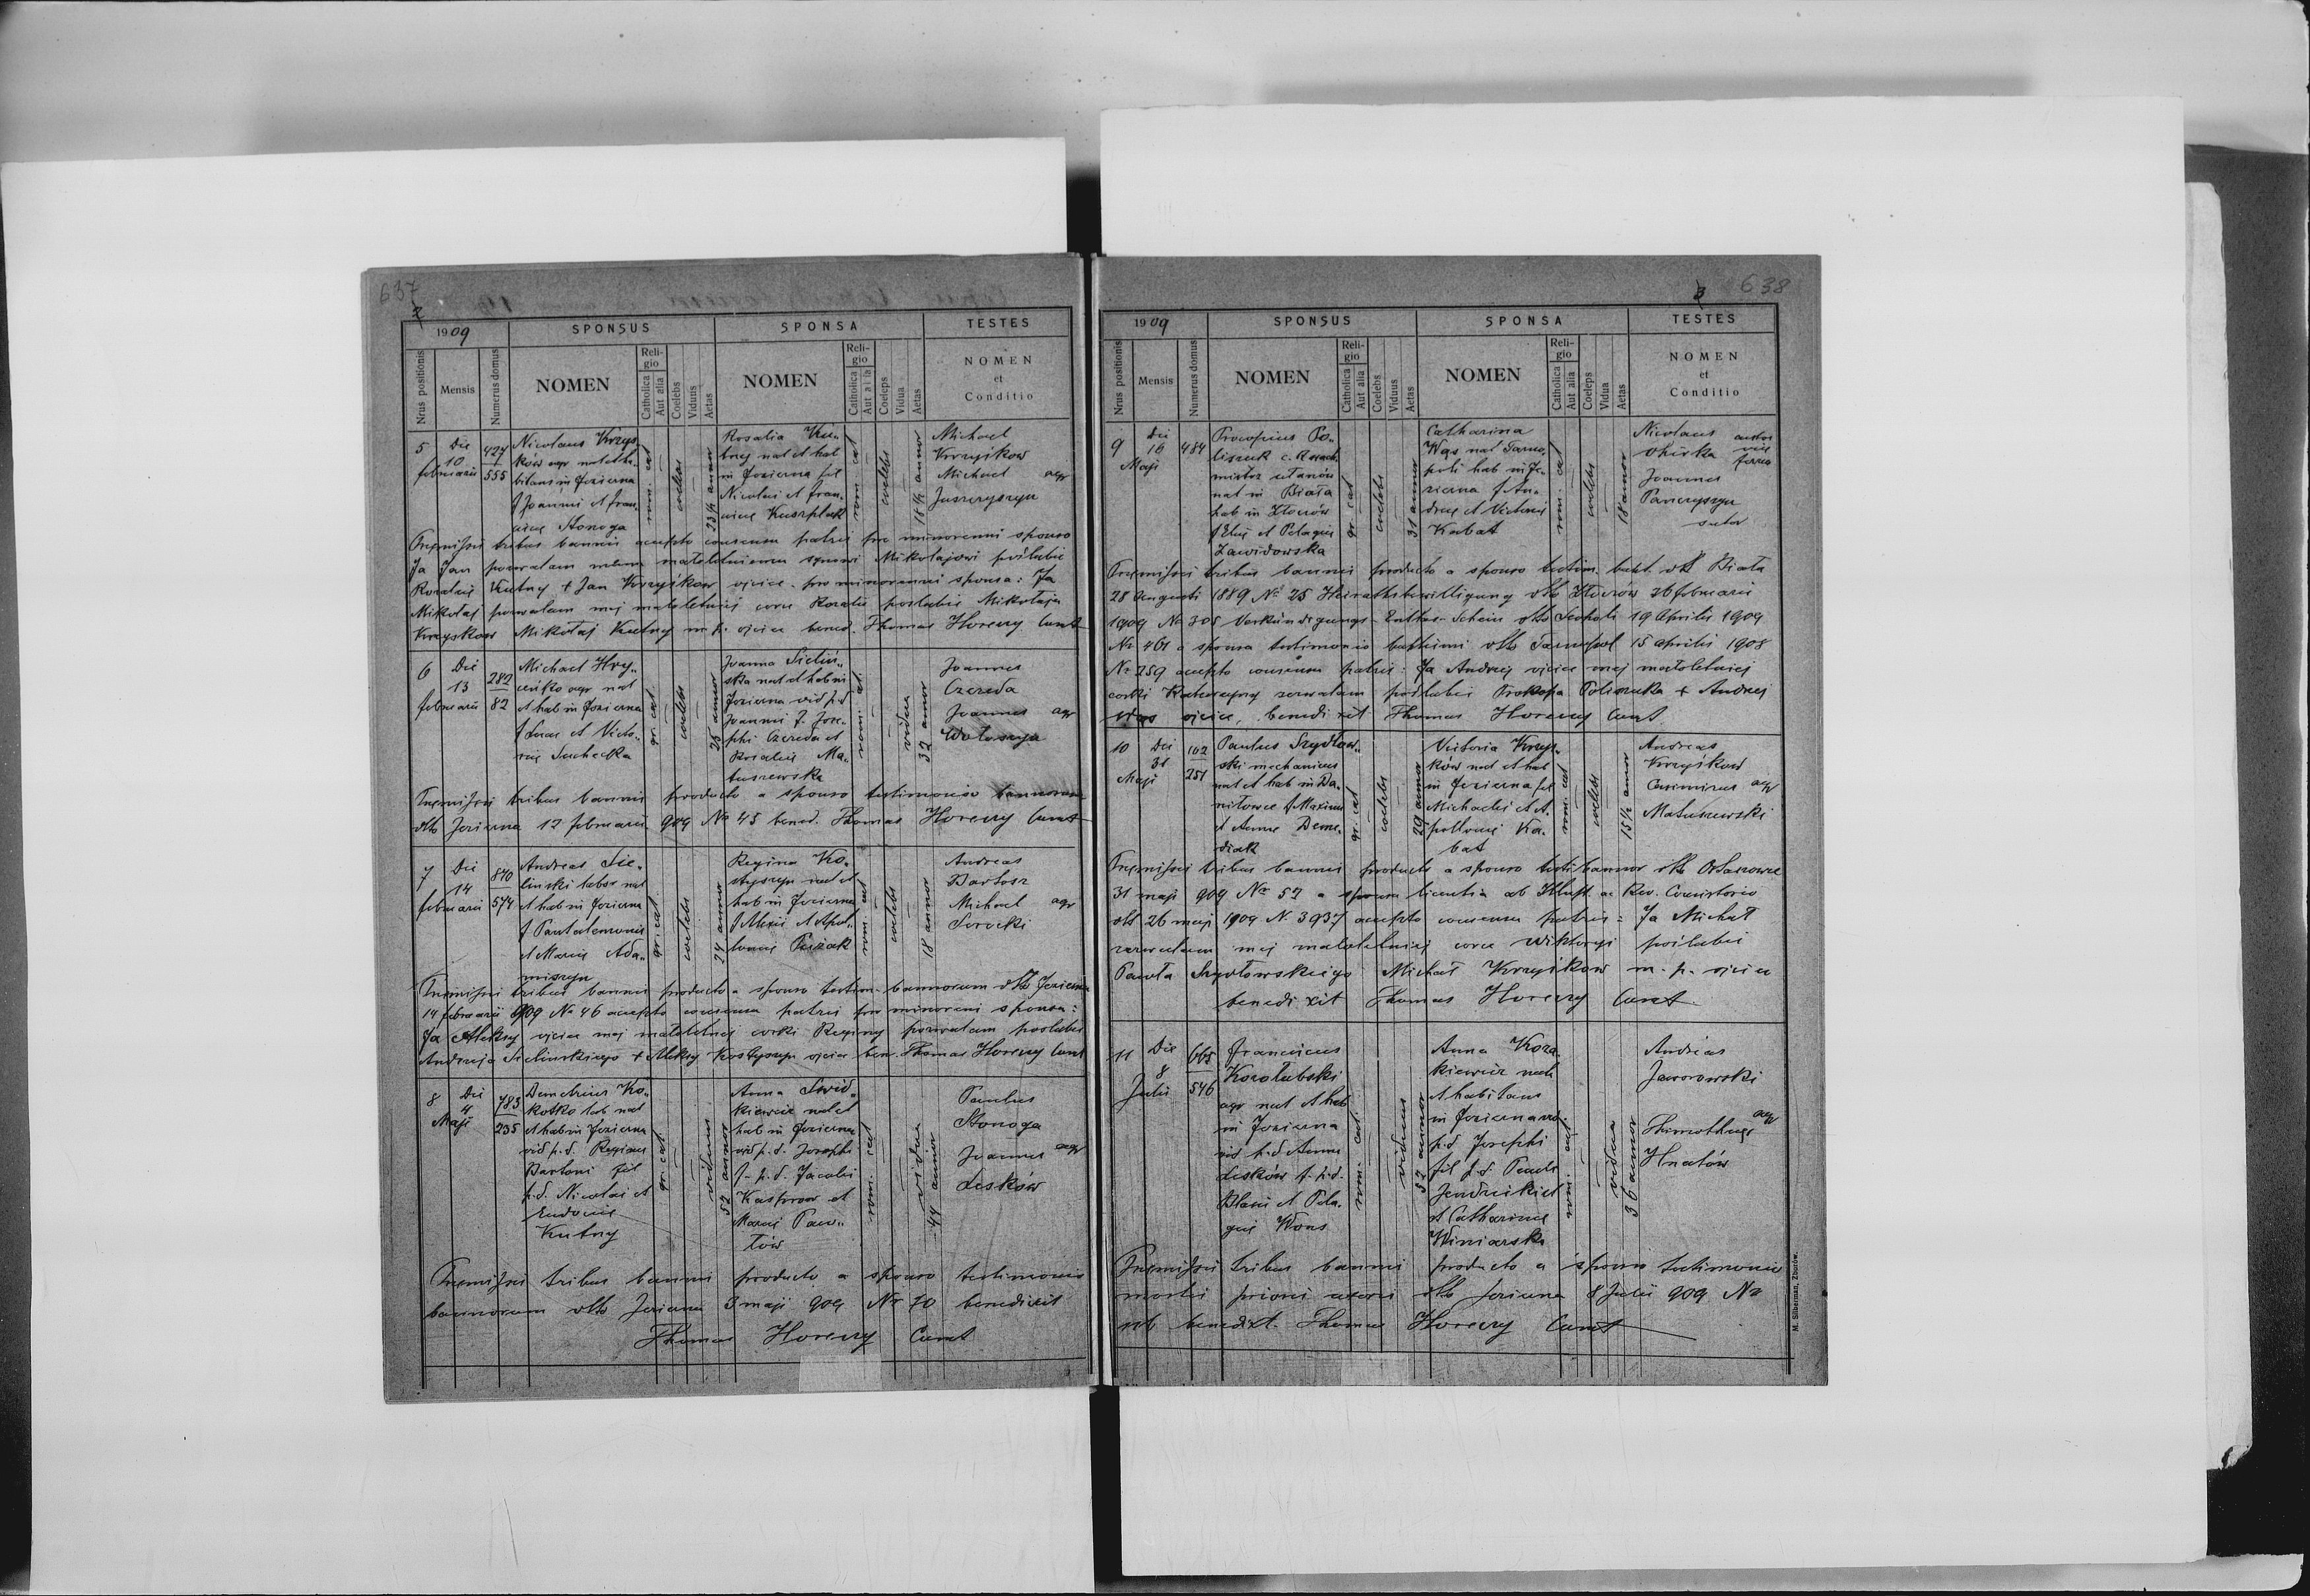 637
2
1909 SPONSUS SPONSA TESTES
Nrus positionis Mensis Numerus domus NOMEN Religio Catholica Aut alia Coelebs Viduus Aetas NOMEN Religio Catholica Aut alia Coeleps Vidua Aetas NOMEN et Conditio
5 Die 10 februarii 427 555
Nicolaus Krzyś
ków agr nat et ha
bitans in Jezierna
f Joannis et Fran
ciscae Stonoga
rom. cat coelebs 23½ annor
Rosalia Ku„
tney nat et hab
in Jezierna fil
Nicolai et Fran„
ciscae
rom cat coelebs 18½ annor
Michael
Krzyśkow
Michael agr
Juszczyszyn
Praemissis tribus bannis accepto consensu patris pro minorenni sponso
Ja Jan pozwalam memu małoletniemu synowi Mikołajowi poślubić
Rozalię Kutny + Jan Krzyśkow ojciec pro minorenni sponsa: Ja
Mikołaj pozwalam mej małoletniej córce Rozalii poślubić Mikołaja
Krzyśkow Mikołaj Kutny m.p. ojciec bened. Thomas Horeczy Curat
6 Die 13 februarii 282 82
Michael Hry„
cuśko agr nat
et hab in Jezierna
f Lucae et Victo„
riae Suchecka
gr. cat coelebs 25 annor
Joanna Sieliń„
ska nat et hab in
Jezierna vid p.d
Joannis f. Jose„
phi Czereda et
Rosaliae Ma„
tuszewska
rom. cat vidua 32 annor
Joannes
Czereda
Joannes agr
Wołoszyn
Praemissis tribus bannis producto a sponso testimonio bannorum
dto Jezierna 12 februarii 909 No 45 bened. Thomas Horeczy Curat
7 Die 14 februarii 840 574
Andreas Sie„
linski labor nat
et hab in Jezierna
f Pantalemonis
et Mariae Ada„
miszyn
gr. cat coelebs 24 annor
Regina Ko„
styszyn nat et
hab in Jezierna
f Alexii et Apol„
loniae Puszak
rom. cat coelebs 18 annor
Andreas
Bartosz
Michael agr
Sorocki
Praemissis tribus bannis producto a sponso testim. bannorum dto Jezierna
14 februarii 909 No 46 accepto consensu patris pro minoreni sponsa:
Ja Aleksy ojciec mej małoletniej córki Reginy pozwalam poślubić
Andrzeja Sielinskiego + Aleksy Kostyszyn ojciec ben. Thomas Horeczy Curat
8 Die 4 Maji 783 235
Demetrius Ko„
kotko lab nat
et hab in Jezierna
vid p.d. Reginae
Bartoni fil
p.d. Nicolai et
Eudoxiae
Kutny
gr. cat viduus 52 annor
Anna Swid„
kiewicz nat et
hab in Jezierna
vid p.d. Josephi
f. p.d. Jacobi
Kasprow et
Mariae Paw„
łów
rom. cat vidua 44 annor
Paulus
Stonoga
Joannes agr
Lesków
Praemissis tribus bannis producto a sponso testimonio
bannorum dto Jezierna 3 maji 909 No 70 benedixit
Thomas Horeczy Curat
638
3
1909 SPONSUS SPONSA TESTES
Nrus positionis Mensis Numerus domus NOMEN Religio Catholica Aut alia Coelebs Viduus Aetas NOMEN Religio Catholica Aut alia Coeleps Vidua Aetas NOMEN et Conditio
9 Die 16 Maji 484
Procopius Po„
liszuk
mistrz ułanów
nat in Biała
hab in Złoczów
f Eliae et Pelagiae
Zawidowska
gr. cat coelebs 31 annor
Catharina
Wąs nat Tarno„
poli hab in Je„
zierna f An„
dreae et Victoriae
Kabat
rom. cat coelebs 18 annor
Nicolaus custos
Okirka viae
ferrea
Joannes
Panczyszyn
sutor
Praemissis tribus bannis producto a sponso testim. bapt. dto Biała
28 Augusti 1889 No 25 Heirathsbewilligung dto Złoczów 26 februarii
1909 No 305 Verkündigungs-Entlas-Schein dto Leopoli 19 Aprilis 1909
Nr 461 a sponsa testimonio baptismi dto Tarnopol 15 aprilis 1908
Nr 259 accepto consensu patris: Ja Andrzej ojciec mej małoletniej
córki Katarzyny zezwalam poślubić Prokopa Poliszuka + Andrzej
Wąs ojciec, benedixit Thomas Horeczy Curat
10 Die 31 Maji 102 251
Paulus Szydłow„
ski mechanicus
nat et hab in Da„
niłowce f Maximi
et Annae Deme„
diak
gr. cat coelebs 29 annor
Victoria Krzyś„
ków nat et hab
in Jezierna fil
Michaelis et A„
polloniae Ka„
bat
rom. cat coelebs 15½ annor
Andreas
Krzyśkow
Casimirus agr
Matuszewski
Praemissis tribus bannis producto a sponso testi bannor dto
31 maji 909 No 57 a sponsa licentia ab Illust. ac Rev. Consistorio
dto 26 maji 1909 N. 3937 accepto consensu patris: Ja Michał
zezwalam mej małoletniej córce Wiktoryi poślubić
Pawła Szydłowskiego Michał Krzyśkow m.p. ojciec
benedixit Thomas Horeczy Curat
11 Die 8 Julii 665 546
Franciscus
Korołubski
agr nat et hab
in Jezierna
vid p.d Annae
Lesków f. p.d.
Blasii et Pela„
giae Wons
rom. cat. viduus 52 annor
Anna Koza„
kiewicz nata
et habitans
in Jezierna vid.
p.d Josephi
fil p.d. Pauli
et Catharinae
Winiarska
rom. cat vidua 36 annor
Andreas
Jaworowski
agr
Thimotheus
Hnatów
Praemissis tribus bannis producto a sponso testimonio
mortis prioris uxoris dto Jezierna 8 Julii 909 No
benedixt. Thomas Horeczy Curat
M. Silberman, Zborów.